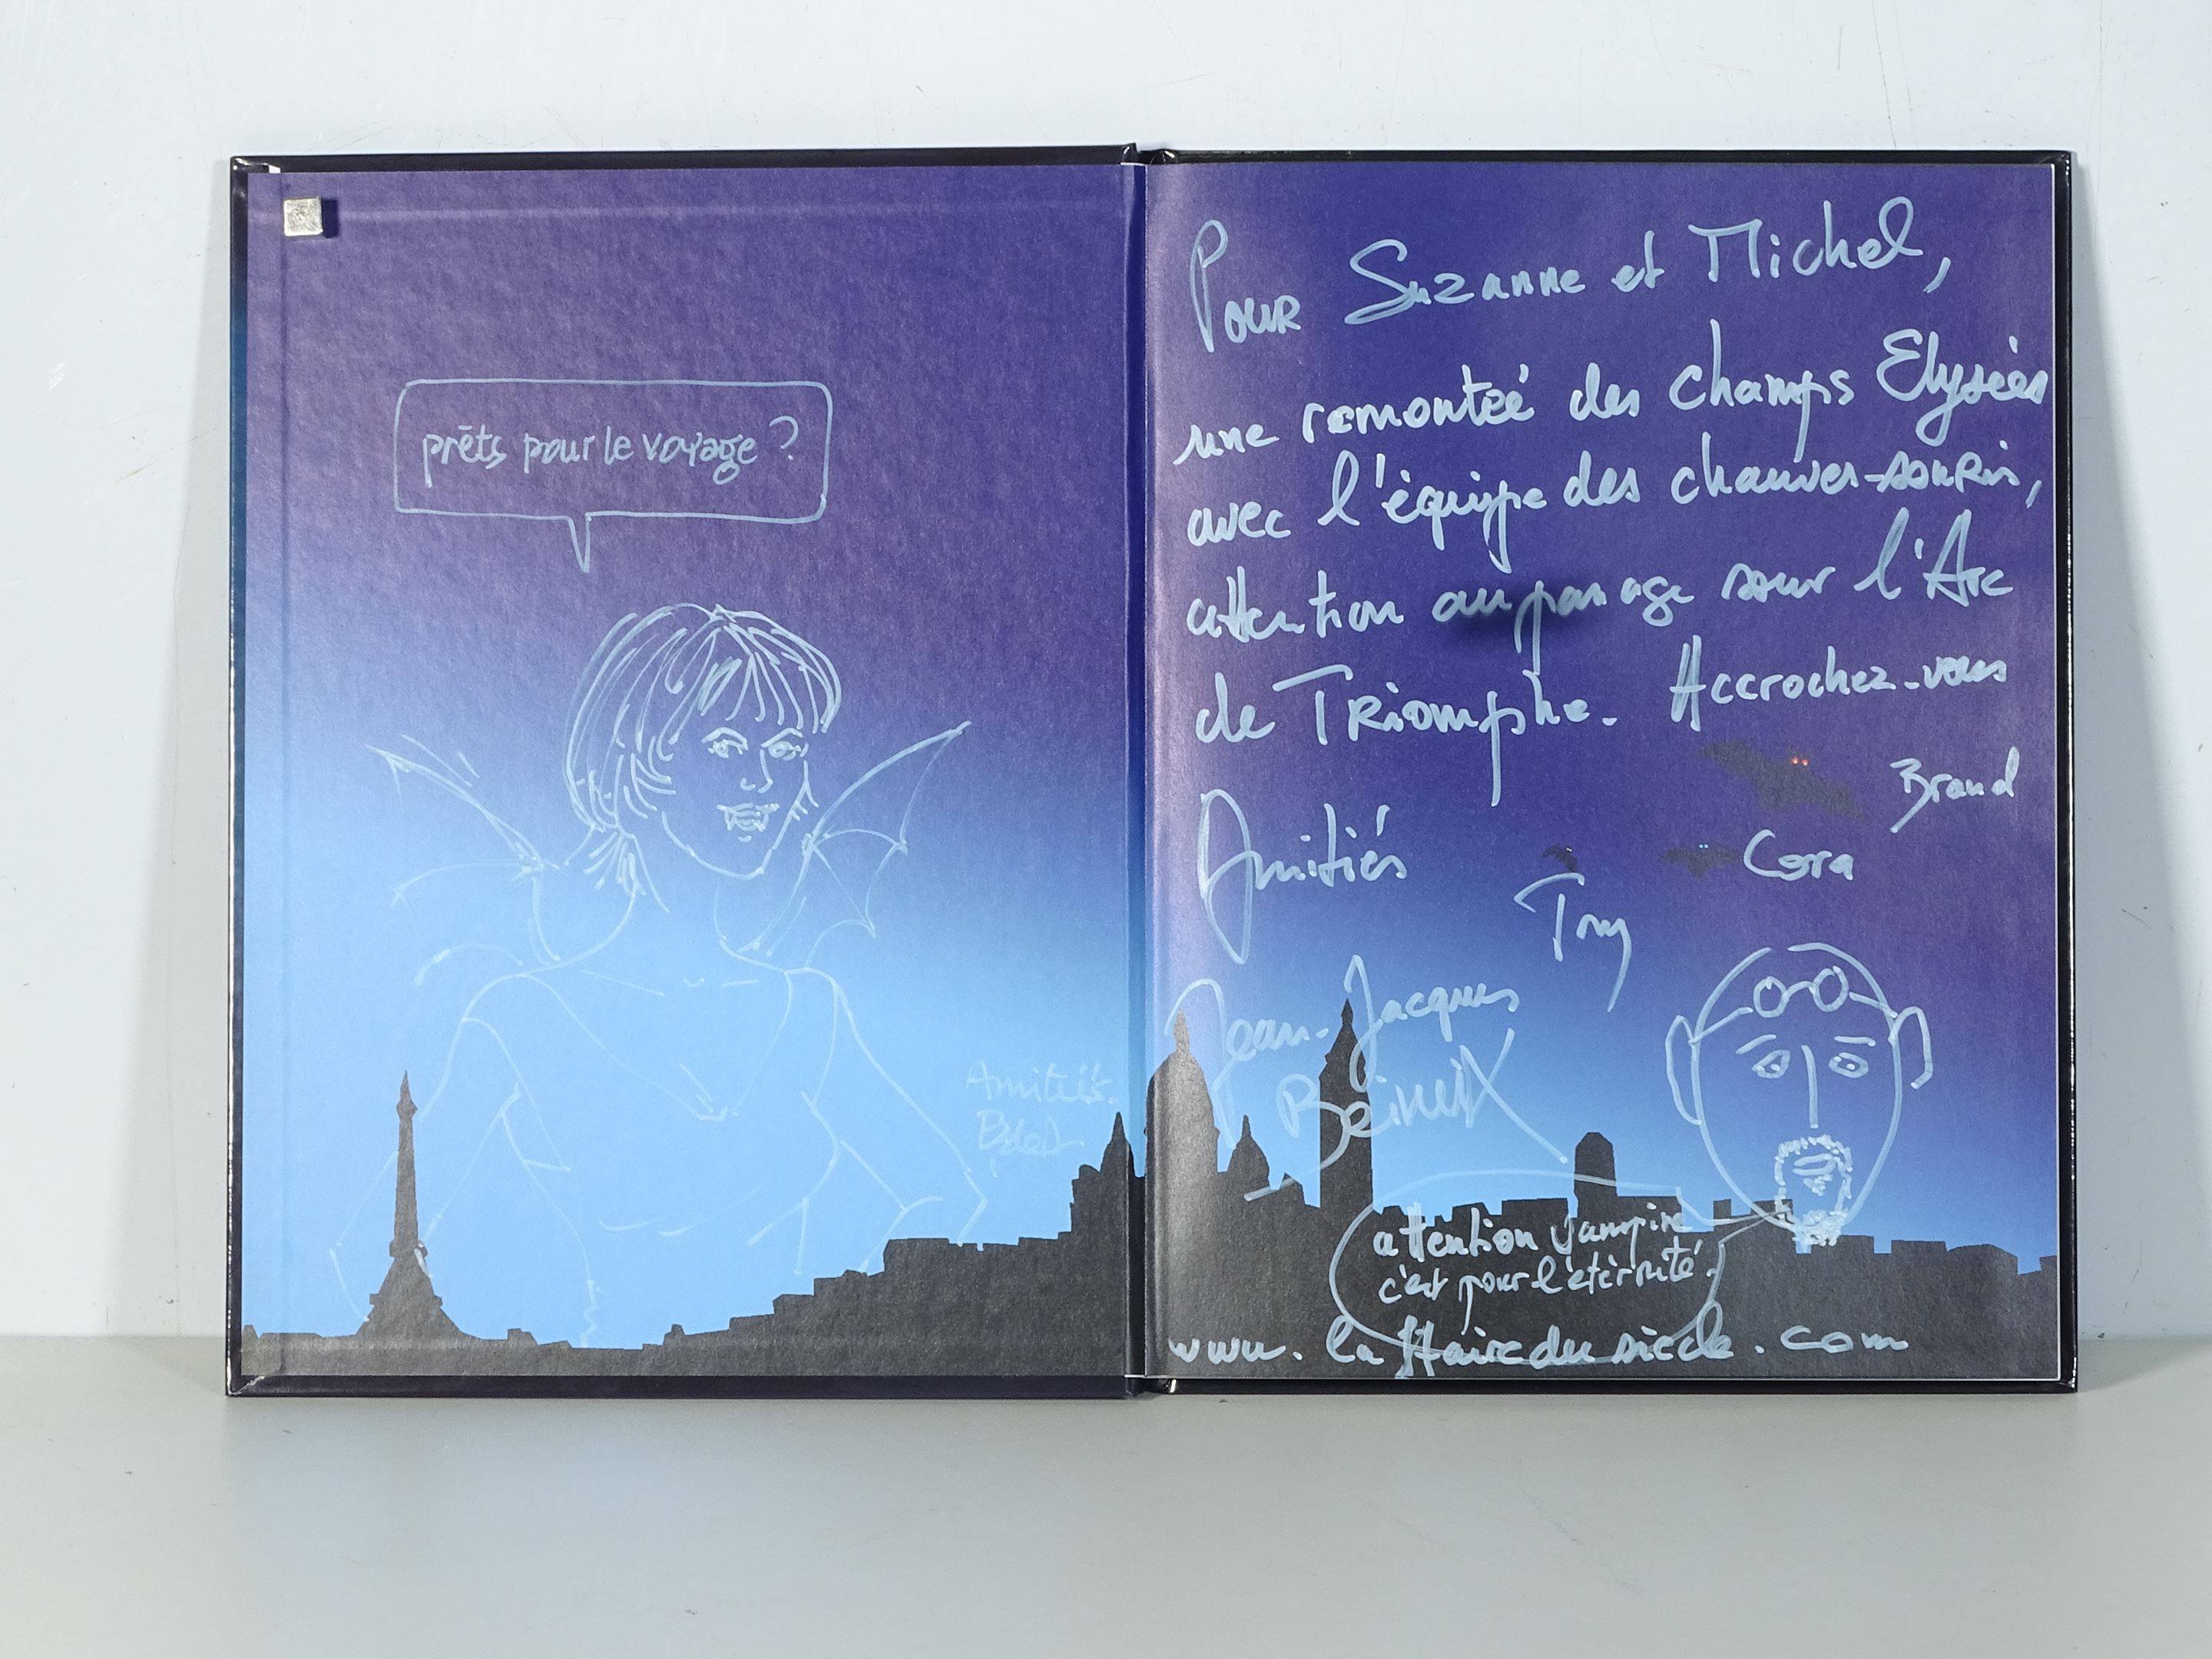 prêts pour le voyage ?
Amitiés.
Pour Suzanne et Michel,
une remontée des Champs Elysées
avec l'équipe des chauves-souris,
attention au passage sous l'Arc
de Triomphe. Accrochez-vous
Brand
Cora
Try
Amitiés
Jean-Jacques
Beineix
attention vampire
c'est pour l'éternité.
www.laffairedusiecle.com